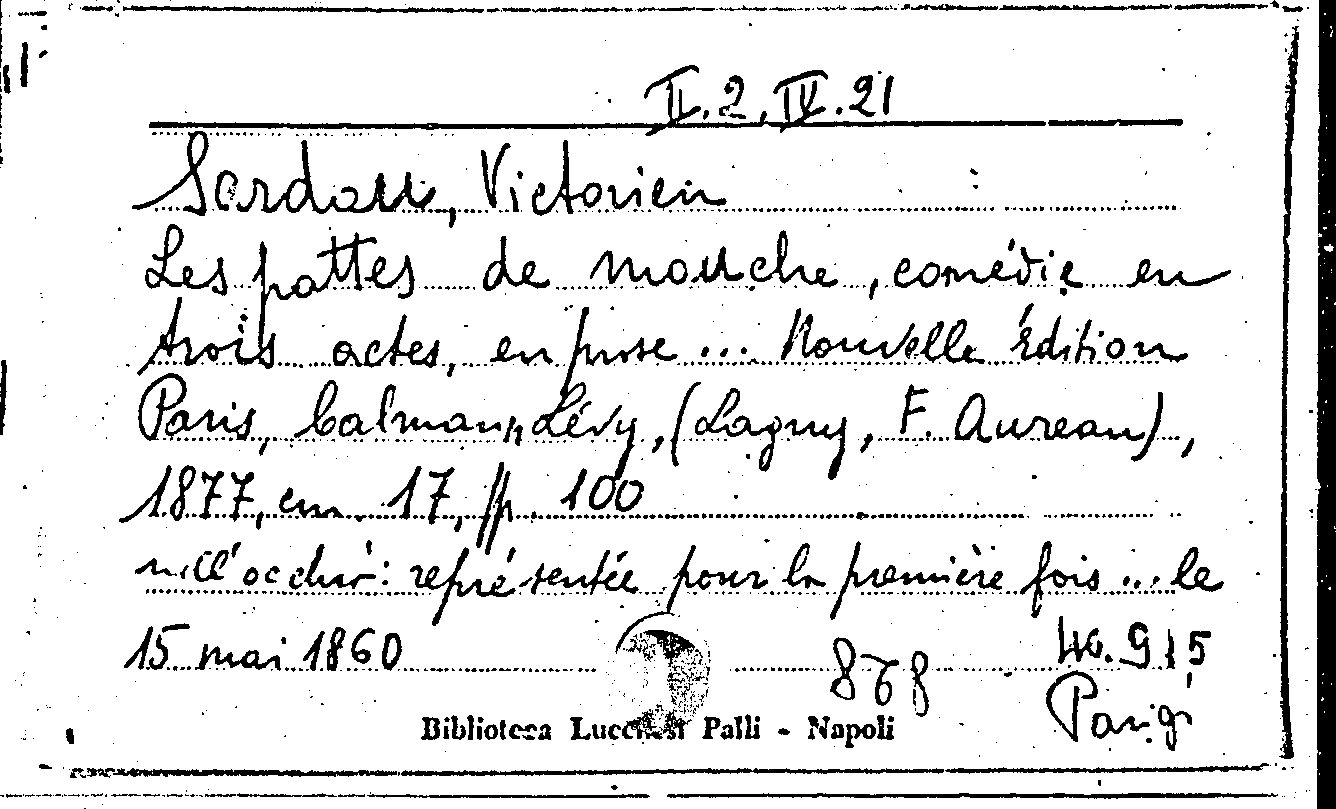 II.2.IV.21
Sardou, Victorien
Les pattes de mouche, comédie en
trois actes, en prose... Nouvelle édition
Paris, Calmann Lévy, (Lagny, F. Aureau),
1877, cm. 17, pp. 100
nell'occhio: représentée pour la première fois... le
15 mai 1860
878
46.915
Parigi
Biblioteca Lucchesi Palli - Napoli